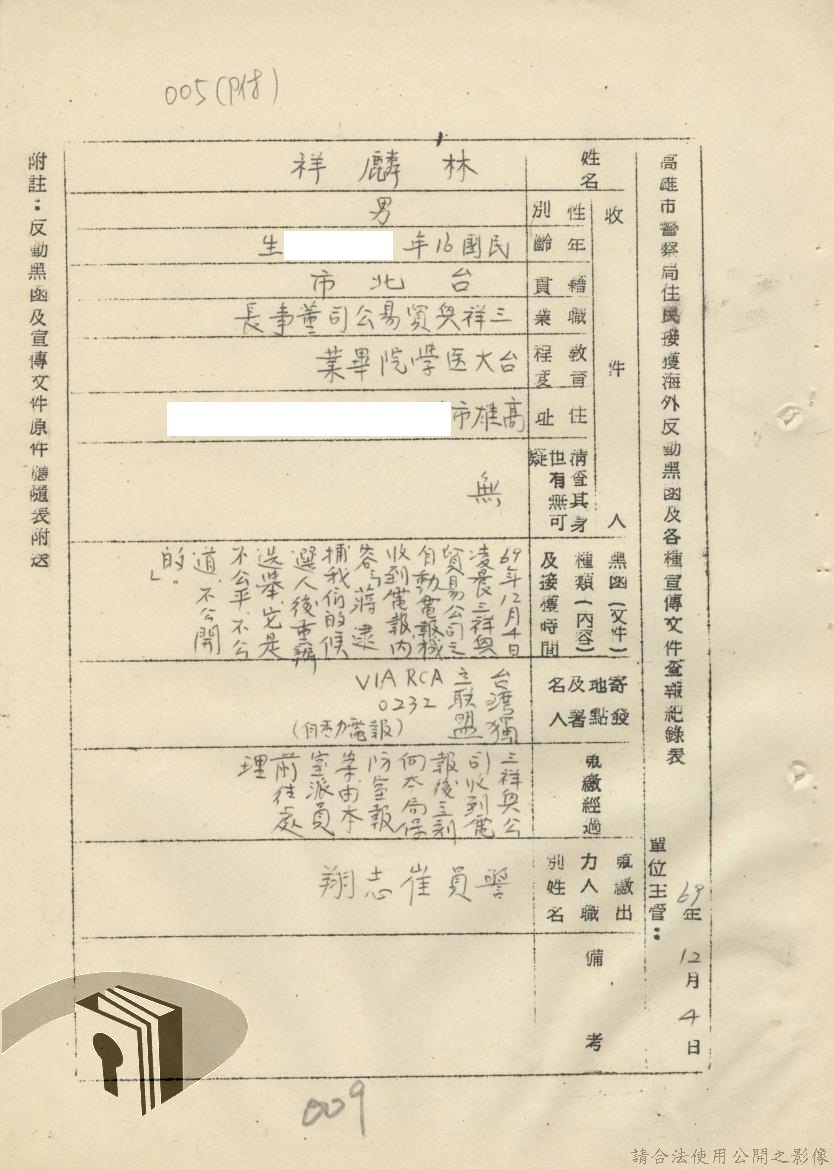 005(附)
高雄市警察局住民接獲海外反動黑函及各種宣傳文件查報紀錄表
單位主管：
69年12月4日
收件人
姓名
林麟祥
性別
男
年齡
民國16年
生
籍貫
台北市
職業
三祥與貿易公司董事長
教育程度
台大医學院畢業
住址
高雄市
清查其身
也有無可
疑
無
黑函(文件)
種類(內容)
及接獲時間
69年12月4日
凌晨三祥與
貿易公司之
自動電報機
收到電報內
容「蔣逮
捕我们的候
選人後重辦
選舉它是
不公平、不公
道、不公開
的」。
寄發
地點
及署
名人
台灣獨
立联盟
VIA RCA
0232
(自動電報)
處繳經過
三祥與公
司收到電
報後立刻
向本局保
防室報
案由本
室派員
前往處
理
處繳出
力人職
別姓名
警員崔志翔
備考
附註：反動黑函及宣傳文件原件應隨表附送
009
請合法使用公開之影像